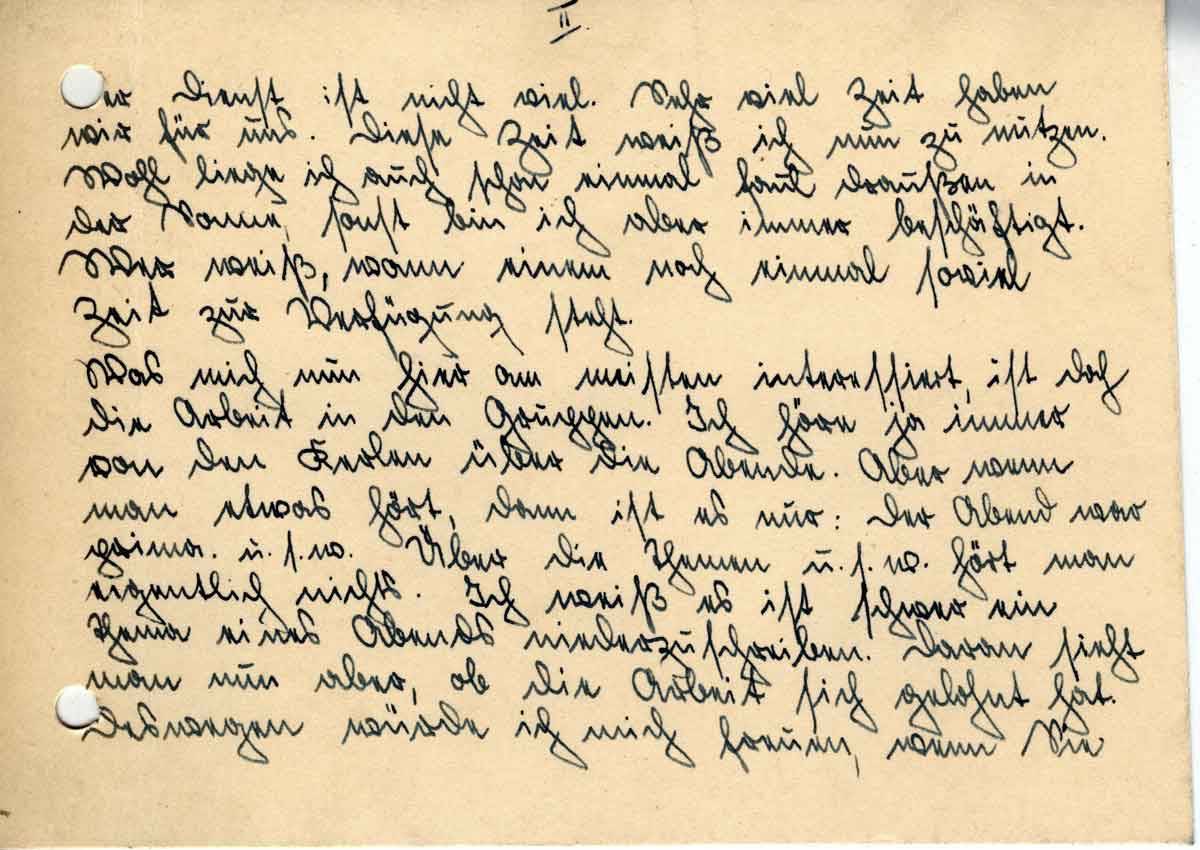 II.
er Dienst ist nicht viel. Sehr viel Zeit haben
wir für uns. Diese Zeit weiß ich nun zu nutzen.
Wohl liege ich auch schon einmal faul draußen in
der Sonne, sonst bin ich aber immer beschäftigt.
Wer weiß, wann einem noch einmal soviel
Zeit zur Verfügung steht.
Was mich nun hier am meisten interessiert, ist doch
die Arbeit in den Gruppen. Ich höre ja immer
von den Kerlen über die Abende. Aber wenn
man etwas hört, dann ist es nur: der Abend war
prima. u. s. w. Über die Themen u. s. w. hört man
eigentlich nichts. Ich weiß es ist schwer ein
Thema eines Abends niederzuschreiben. Daran sieht
man nun aber, ob die Arbeit sich gelohnt hat.
Deswegen würde ich mich freuen, wenn Sie